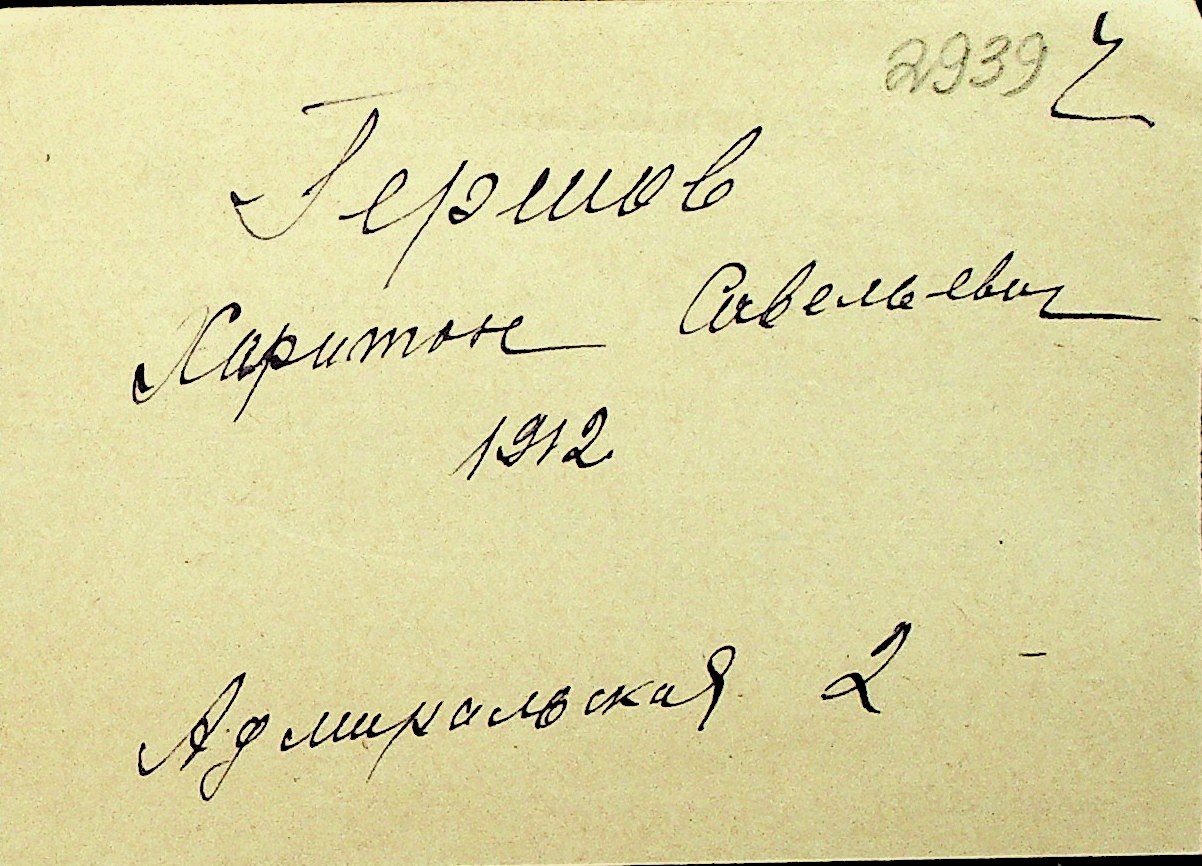 2939
Гершов
Харитон Савельевич
1912
Адмиральская 2 -